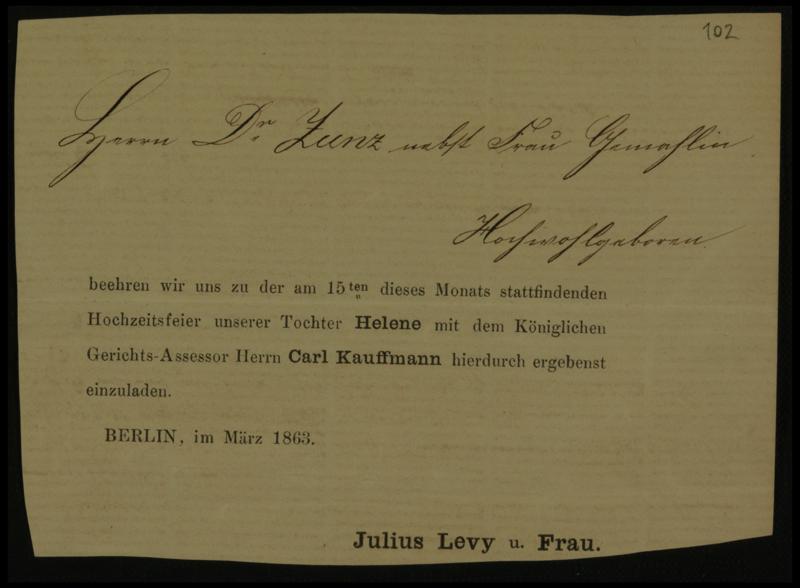 102
Herrn Dr. Zunz nebst Frau Gemahlin
Hochwohlgeboren.
beehren wir uns zu der am 15ten dieses Monats stattfindenden
Hochzeitsfeier unserer Tochter Helene mit dem Königlichen
Gerichts-Assessor Herrn Carl Kauffmann hierdurch ergebenst
einzuladen.
BERLIN, im März 1863.
Julius Levy u. Frau.